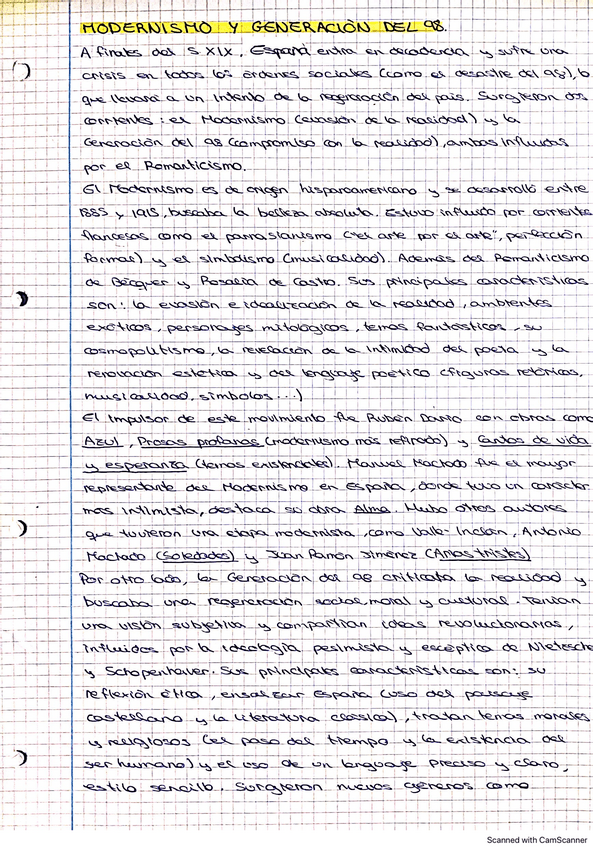 MODERNISMO Y GENERACIÓN DEL 98.
A finales del S XIX, España entra en decadencia y sufre una
crisis en todos los órdenes sociales (como el desastre del 98), lo
que llevará a un intento de la regeneración del país. Surgieron dos
corrientes: el Modernismo (evasión de la realidad) y la
Generación del 98 (compromiso con la realidad), ambas influidas
por el Romanticismo.
El Modernismo es de origen hispanoamericano y se desarrolló entre
1885 y 1915, buscaba la belleza absoluta. Estuvo influido por corrientes
francesas como el parnasianismo ("el arte por el arte", perfección
formal) y el simbolismo (musicalidad). Además del Romanticismo
de Bécquer y Rosalía de Castro. Sus principales características
son: la evasión e idealización de la realidad, ambientes
exóticos, personajes mitológicos, temas fantásticos, su
cosmopolitismo, la revelación de la intimidad del poeta y la
renovación estética y del lenguaje poético (figuras retóricas,
musicalidad, símbolos...)
El impulsor de este movimiento fue Rubén Darío con obras como
Azul, Prosas profanas (modernismo más refinado) y Cantos de vida
y esperanza (temas existenciales). Manuel Machado fue el mayor
representante del Modernismo en España, donde tuvo un carácter
más intimista, destaca su obra Alma. Hubo otros autores
que tuvieron una etapa modernista, como Valle-Inclán, Antonio
Machado (Soledades) y Juan Ramón Jiménez (Arias tristes)
Por otro lado, la Generación del 98 criticaba la realidad y
buscaba una regeneración social, moral y cultural. Tenían
una visión subjetiva y compartían ideas revolucionarias,
influidos por la ideología pesimista y escéptica de Nietzsche
y Schopenhauer. Sus principales características son: su
reflexión ética, ensalzar España (uso del paisaje
castellano y la literatura clásica), tratan temas morales
y religiosos (el paso del tiempo y la existencia del
ser humano) y el uso de un lenguaje preciso y claro,
estilo sencillo. Surgieron nuevos géneros como
Scanned with CamScanner